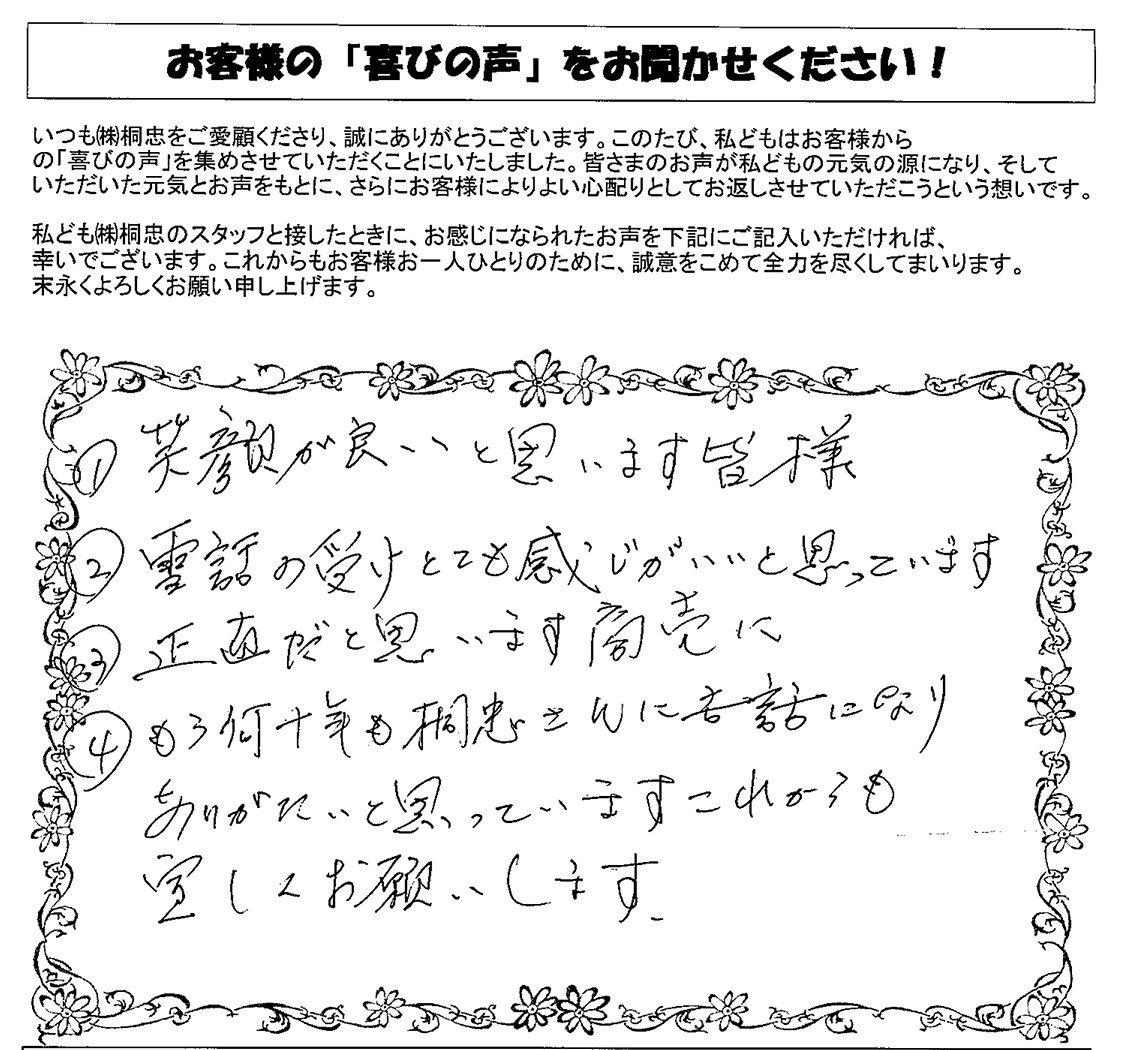 お客様の「喜びの声」をお聞かせください！
いつも㈱桐忠をご愛顧くださり、誠にありがとうございます。このたび、私どもはお客様から
の「喜びの声」を集めさせていただくことにいたしました。皆さまのお声が私どもの元気の源になり、そして
いただいた元気とお声をもとに、さらにお客様によりよい心配りとしてお返しさせていただこうという想いです。
私ども㈱桐忠のスタッフと接したときに、お感じになられたお声を下記にご記入いただければ、
幸いでございます。これからもお客様お一人ひとりのために、誠意をこめて全力を尽くしてまいります。
末永くよろしくお願い申し上げます。
① 笑顔が良いと思います皆様
② 電話の受けとても感じがいいと思っています
③ 正直だと思います商売に
④ もう何十年も桐忠さんにお世話になり
ありがたいと思っていますこれからも
宜しくお願いします.